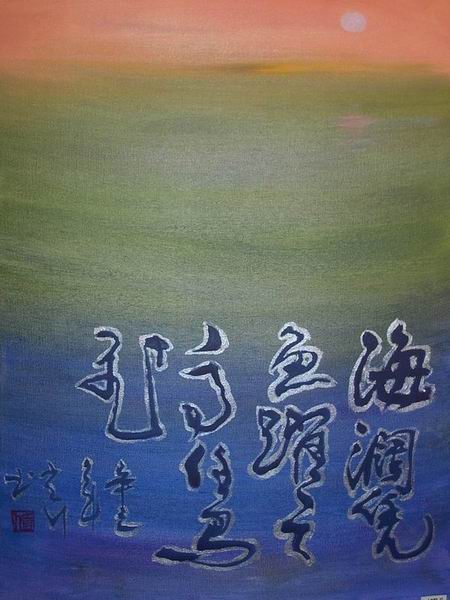 海濶凭
鱼躍天
高任鸟
飞